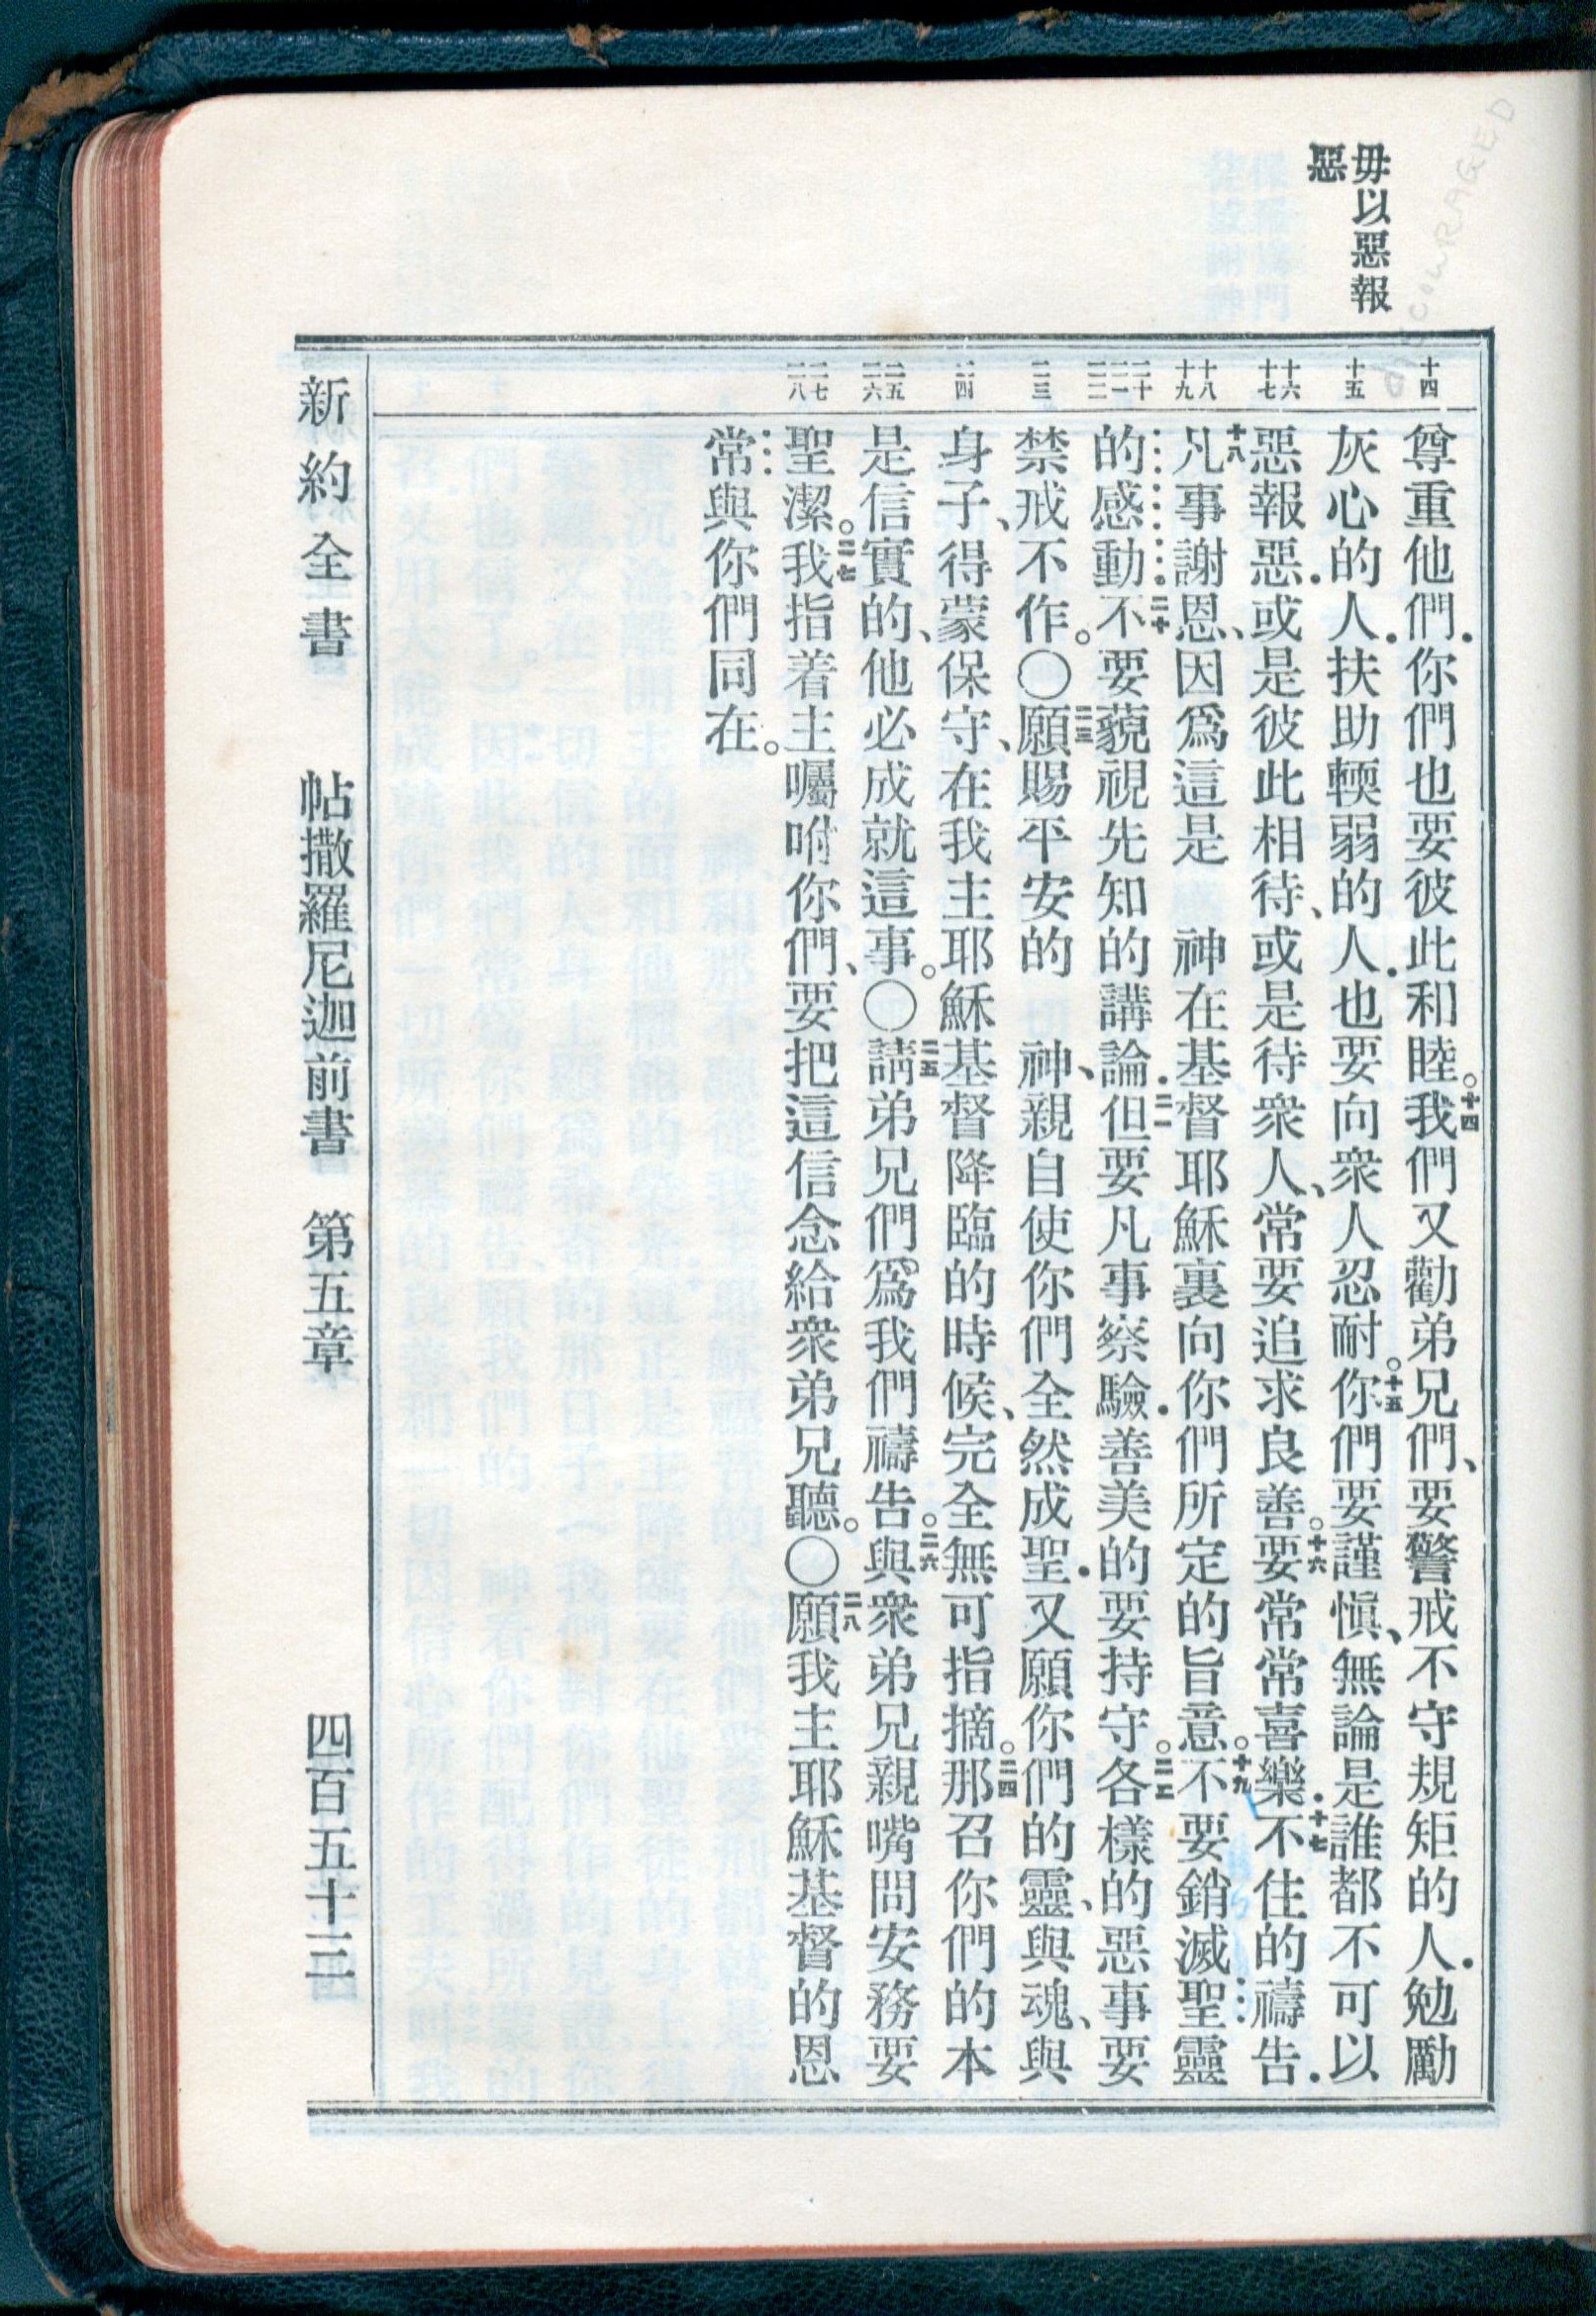 毋以惡報
惡
DISCOURAGED
十四
十五
十六
十七
十八
十九
二十
二一
二二
二三
二四
二五
二六
二七
二八
尊重他們．你們也要彼此和睦。十四我們又勸弟兄們、要警戒不守規矩的人．勉勵
灰心的人．扶助輭弱的人．也要向衆人忍耐。十五你們要謹愼、無論是誰都不可以
惡報惡．或是彼此相待、或是待衆人、常要追求良善。十六要常常喜樂．十七不住的禱告．
十八凡事謝恩、因爲這是　神在基督耶穌裏向你們所定的旨意。十九不要銷滅聖靈
的感動．二十不要藐視先知的講論．二一但要凡事察驗．善美的要持守。二二各樣的惡事要
禁戒不作。〇二三願賜平安的　神、親自使你們全然成聖．又願你們的靈、與魂、與
身子、得蒙保守、在我主耶穌基督降臨的時候、完全無可指摘。二四那召你們的本
是信實的、他必成就這事。〇二五請弟兄們爲我們禱告。二六與衆弟兄親嘴問安務要
聖潔。二七我指着主囑咐你們、要把這信念給衆弟兄聽。〇二八願我主耶穌基督的恩
常與你們同在。
新約全書　帖撒羅尼迦前書　第五章　四百五十三